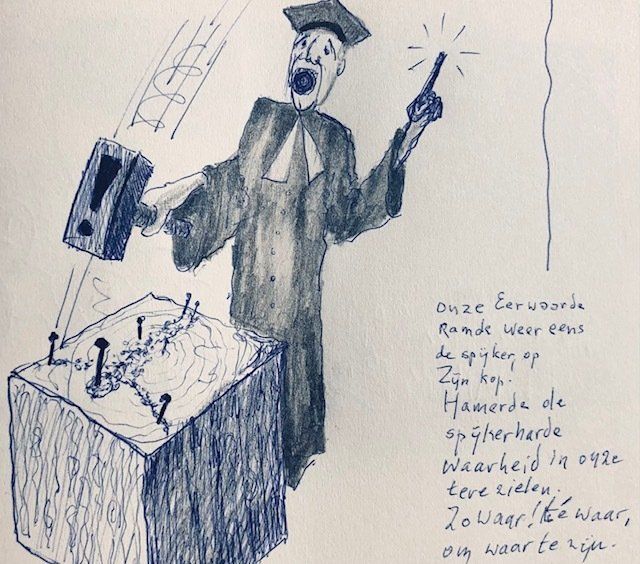 !
onze Eerwaarde
Ramde weer eens
de spijker, op
Zijn kop.
Hamerde de
spijkerharde
waarheid in onze
tere zielen.
Zo waar! té waar,
om waar te zijn.